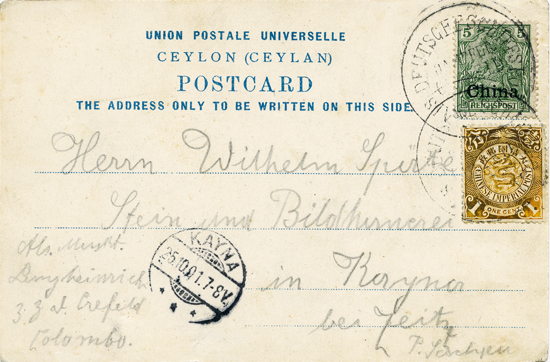 UNION POSTALE UNIVERSELLE
CEYLON (CEYLAN)
POSTCARD
THE ADDRESS ONLY TO BE WRITTEN ON THIS SIDE.
DEUTSCHE
5 5
China
REICHSPOST
CHINESE IMPERIAL POST
1 ONE CENT 1
Herrn Wilhelm
Stein und Bildhauerei
KAYNA
25.10.01.7-8V.
in Kayna
bei Zeitz
P. Sachsen
Abs.
Crefeld
Colombo.